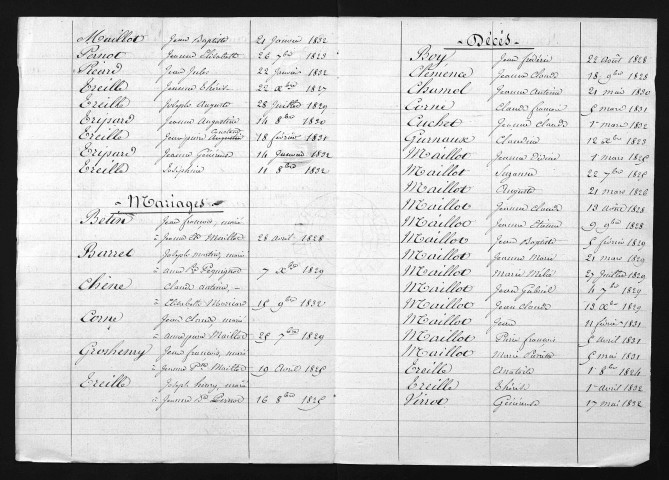 Maillot Jean Baptiste 21 Janvier 1832
Pernot Jeanne Elisabeth 26 7bre 1823
Picard Jean Jules 22 Janvier 1832
Treille Jeanne Théris 22 Xbre 1827
Treille Joseph Auguste 28 Juillet 1829
Tripard Jeanne Augustine 14 8bre 1830
Treille Jean pierre Augustin 18 février 1831
Tripard Jeanne Généreuse 14 Janvier 1832
Treille Joséphine 11 8bre 1832
- Mariages -
Betin Jean françois, marié
à Jeanne Maillot 28 avril 1828
Barret Joseph marié
à anne Peguignot 7 Xbre 1829
Chêne Claude antoine, -
à Elisabeth 15 9bre 1832
Corne Jean Claude marié
à anne Maillot 25 7bre 1829
Groshenry Jean françois, marié
à Jeanne Maillot 19 avril 1825
Treille Joseph henry, marié
à Jeanne Pernot 16 8bre 1825
- Décès -
Boy Jean frédéric 22 août 1828
Clémence Jeanne Claude 18 9bre 1828
Chamol Jeanne Antoine 21 mai 1830
Corne Claude françois 5 mars 1831
Cuchet Jeanne Claude 1er mars 1832
Gurnaux Claudine 12 Xbre 1823
Maillot Jeanne 1 mars 1825
Maillot Suzanne 22 7bre 1825
Maillot Auguste 21 mars 1826
Maillot Jeanne Claude 13 août 1828
Maillot Jeanne 9 9bre 1828
Maillot Jean Baptiste 5 février 1829
Maillot Jeanne Marie 21 mars 1829
Maillot Marie 27 Juillet 1829
Maillot Jean Gabriel 4 7bre 1829
Maillot Jean Claude 13 Xbre 1829
Maillot Jean 11 février 1831
Maillot Pierre françois 5 avril 1831
Maillot Marie 5 mai 1831
Treille Anatole 1er 8bre 1824
Treille Théris 1er avril 1832
Virot Généreuse 17 mai 1832